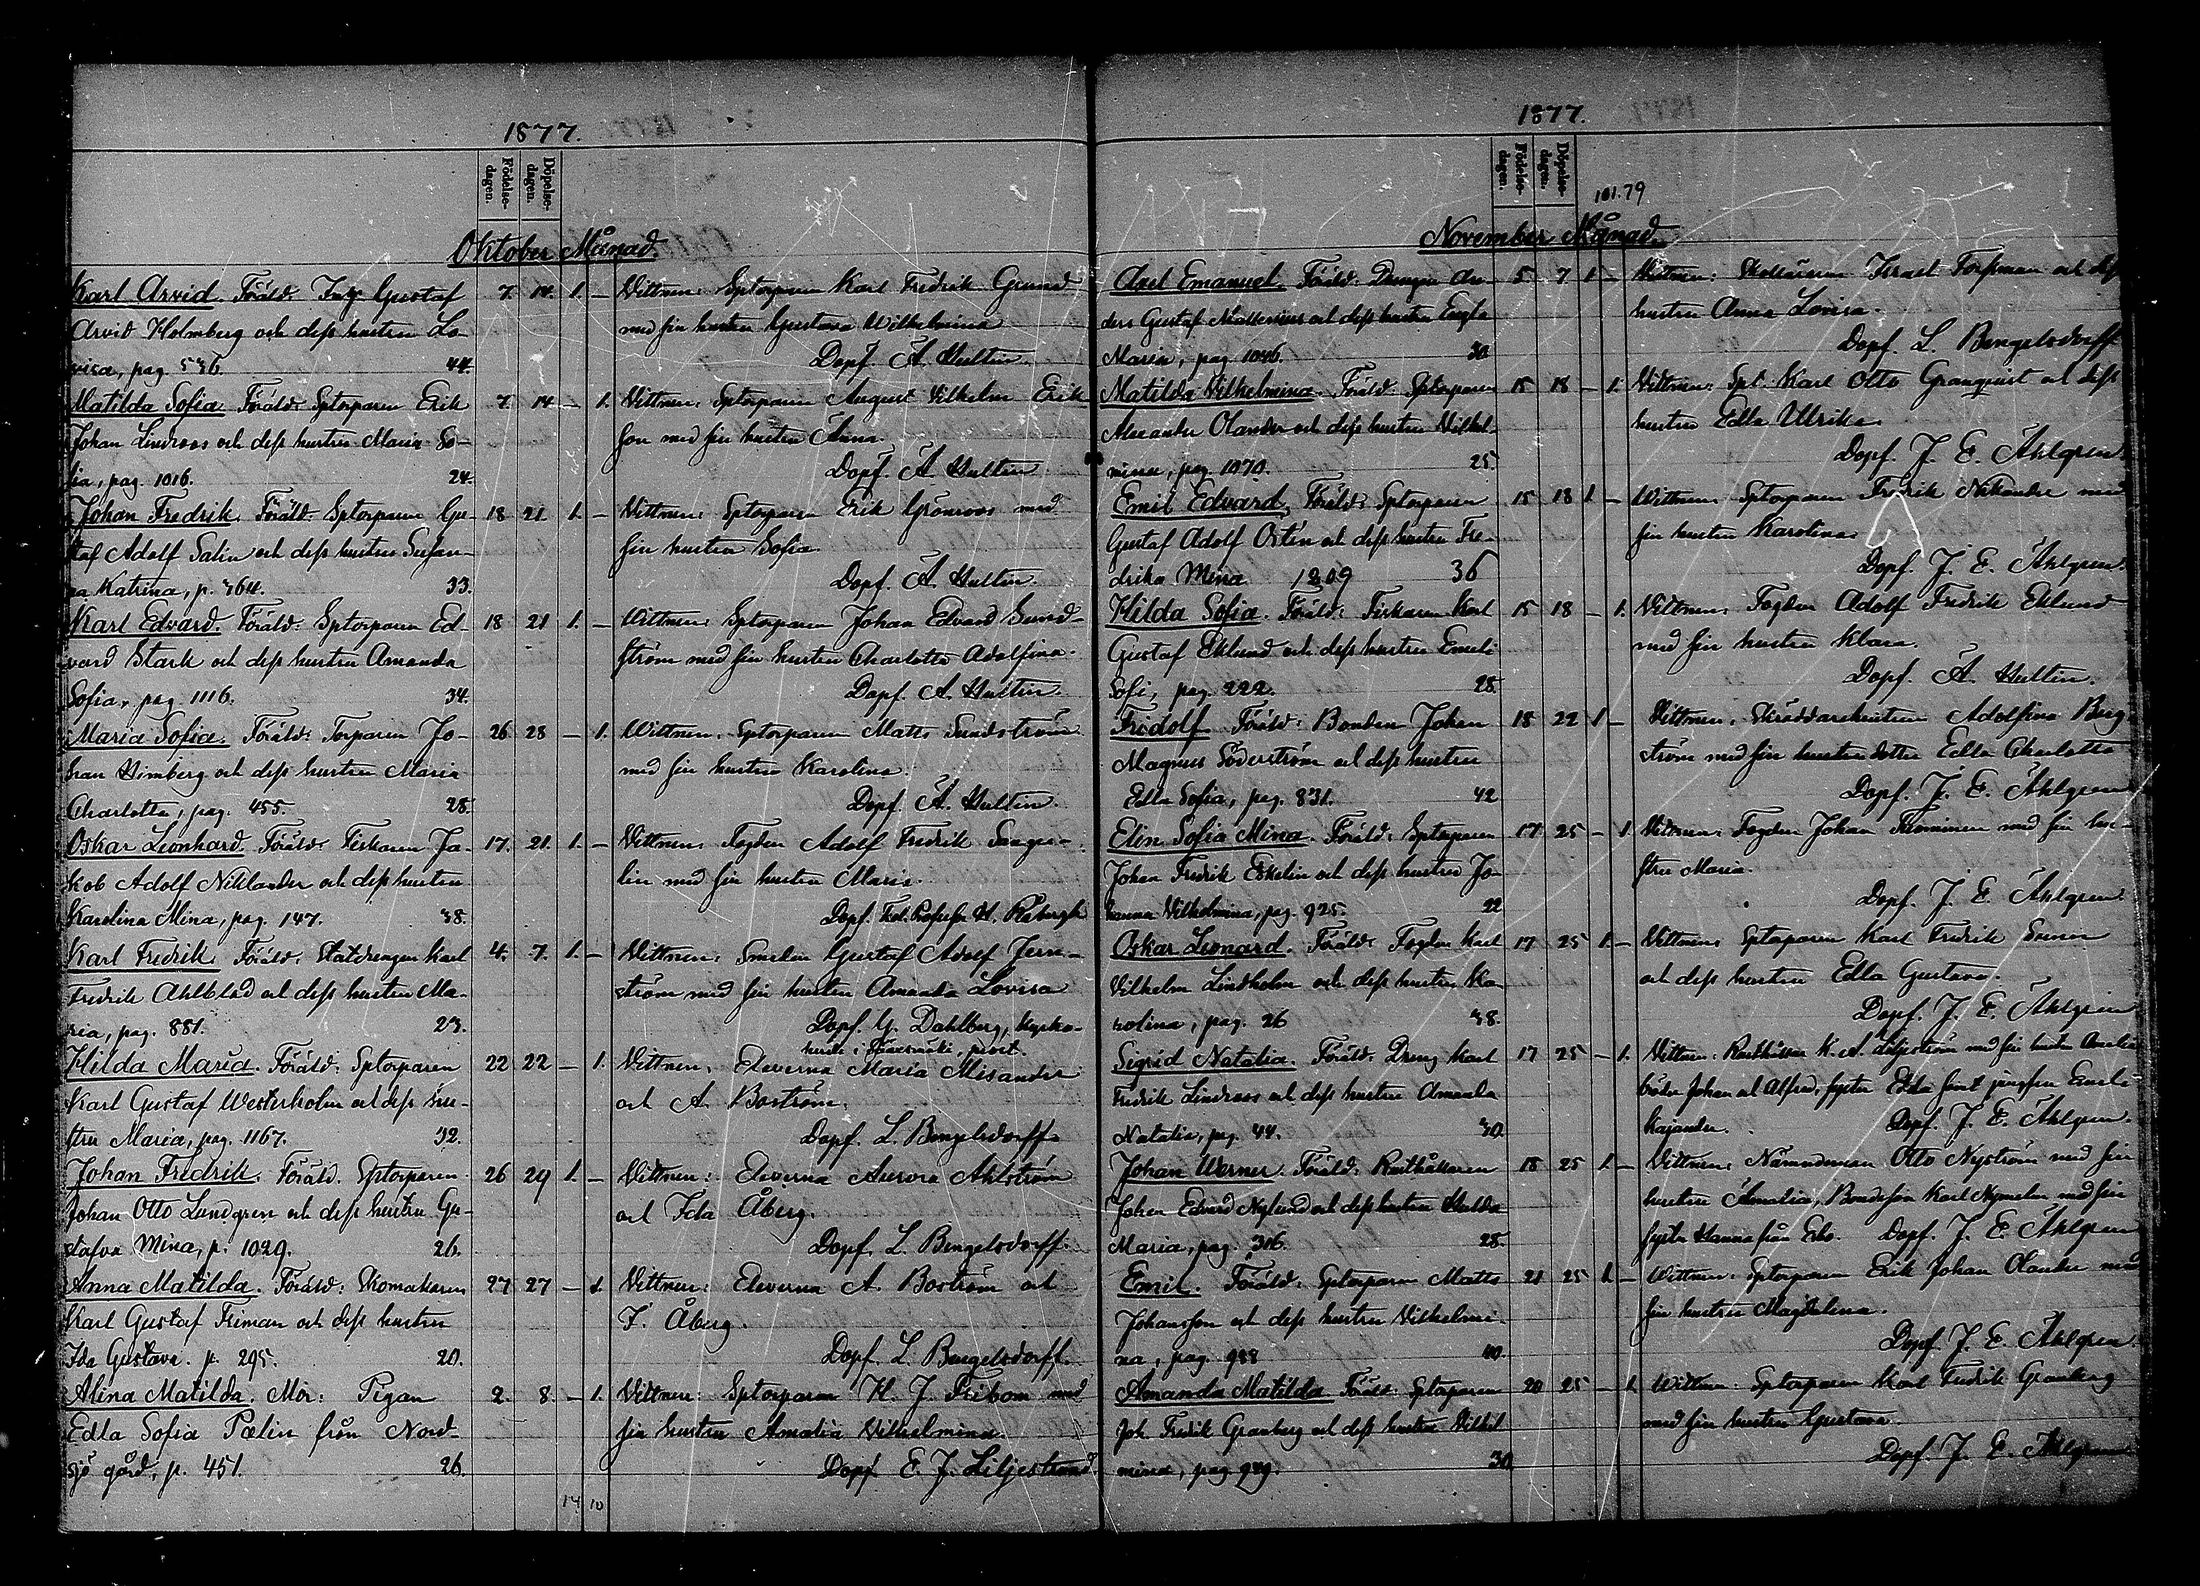 1877.
Födelse-
dagen.
Döpelse-
dagen.
Oktober Månad.
Karl Arvid. Föräld: Inh. Gustaf 7. 14. 1. — Vittnen: Sptorparen Karl Fredrik Grund
Arvid Holmberg och dess hustru Lo- med sin hustru Gustava Wilhelmina
visa, pag. 536. 44. Dopf. A. Hultin
Matilda Sofia. Föräld: Sptorparen Erik 7. 14 — 1. Vittnen: Sptorparen August Vilhelm Erik
Johan Lindroos och dess hustru Maria So- son med sin hustru Anna.
fia, pag. 1016. 24. Dopf. A. Hultin
Johan Fredrik. Föräld: Sptorparen Gu- 18 21 1. — Vittnen: Sptorparen Erik Grönroos med
staf Adolf Salin och dess hustru Susan- sin hustru Sofia.
na Katrina, p. 364. 33. Dopf. A. Hultin.
Karl Edvard. Föräld: Sptorparen Ed- 18 21 1. — Vittnen: Sptorparen Johan Edvard Sund-
vard Stark och dess hustru Amanda ström med sin hustru Charlotta Adolfina.
Sofia, pag. 1116. 34. Dopf. A. Hultin.
Maria Sofia. Föräld: Torparen Jo- 26 28 — 1. Wittnen: Sptorparen Matts Sundström
han Himberg och dess hustru Maria med sin hustru Karolina.
Charlotta, pag. 455. 28. Dopf. A. Hultin.
Oskar Leonhard. Föräld: Fiskaren Ja- 17. 21. 1. — Vittnen: Fogden Adolf Fredrik
kob Adolf Niklander och dess hustru lin med sin hustru Maria.
Karolina Mina, pag. 147. 38. Dopf. H. Råbergh
Karl Fredrik. Föräld: Statdrengen Karl 4. 7. 1. — Vittnen: Smeden Gustaf Adolf Jern-
Fredrik Ahlblad och dess hustru Ma- ström med sin hustru Amanda Lovisa
ria, pag. 881. 23. Dopf. G. Dahlberg, kyrko-
herde i
Hilda Maria. Föräld: Sptorparen 22 22 — 1. Vittnen: Eleverna Maria Misander
Karl Gustaf Westerholm och dess hu- och A. Boström.
stru Maria, pag. 1167. 32. Dopf. L. Bengelsdorff
Johan Fredrik. Föräld. Sptorparen 26 29 1. — Vittnen: Eleverna Aurora Ahlström
Johan Otto Lundgren och dess hustru Gu- och Ida Åberg.
stafva Mina, p. 1029. 26. Dopf. L. Bengelsdorff.
Anna Matilda. Föräld: Skomakaren 27 27 — 1. Vittnen: Eleverna A. Boström och
Karl Gustaf Friman och dess hustru F. Åberg.
Ida Gustava. p. 295. 20. Dopf. L. Bengelsdorff.
Alina Matilda. Mor: Pigan 2. 8. — 1. Vittnen: Sptorparen H. J. Fribom med
Edla Sofia Palin från Nord- sin hustru Amalia Vilhelmina.
sjö gård, p. 451. 26. Dopf. E. J. Liljestrand
14 10
1877.
Födelse-
dagen.
Döpelse-
dagen.
101.79
November Månad.
Axel Emanuel. Föräld: Drengen An- 5 7 1 — Vittnen: Israel Forsman och dess
ders Gustaf och dess hustru Engla hustru Anna Lovisa.
Maria, pag. 1046. 30. Dopf. L. Bengelsdorff
Matilda Vilhelmina. Föräld: Sptorparen 15 18 — 1. Vittnen: Spt. Karl Otto Granqvist och dess
Alexander Olander och dess hustru Vilhel- hustru Edla Ullrika.
mina, pag. 1070. 25. Dopf. J. E. Åhlgren.
Emil Edvard. Föräld: Sptorparen 15 18 1. — Wittnen: Sptorparen Fredrik Nikander med
Gustaf Adolf Östen och dess hustru Fre- sin hustru Karolina.
drika Mina 1209 36 Dopf. J. E. Åhlgren.
Hilda Sofia. Föräld: Fiskaren Karl 15 18 — 1. Vittnen: Fogden Adolf Fredrik Eklund
Gustaf Eklund och dess hustru Emeli med sin hustru Klara.
Sofi, pag. 222. 28. Dopf. A. Hultin.
Fridolf. Föräld: Bonden Johan 18 22 1 — Vittnen: Skräddarehustrun Adolfina Berg-
Magnus Söderström och dess hustru ström med sin dotter Edla Charlotta
Edla Sofia, pag. 831. 42 Dopf. J. E. Åhlgren
Elin Sofia Mina. Föräld: Sptorparen 17 25 — 1 Vittnen: Fogden Johan med sin hu-
Johan Fredrik Eskelin och dess hustru Jo- stru Maria.
hanna Vilhelmina, pag. 925. 22 Dopf. J. E. Åhlgren
Oskar Leonard. Föräld: Fogden Karl 17 25 1. — Vittnen: Sptorparen Karl Fredrik
Vilhelm Lindholm och dess hustru Ka- och dess hustru Edla Gustava.
rolina, pag. 26 38. Dopf. J. E. Åhlgren
Sigrid Natalia. Föräld: Dreng Karl 17 25 — 1. Vittnen: Rusthållaren K. A. Liljeström med sin hustru Amalia
Fredrik Lindroos och dess hustru Amanda Johan och Alfred, syster Edla samt jungfru Emeli
Natalia, pag. 44. 30 Kajander. Dopf. J. E. Åhlgren.
Johan Werner. Föräld: Rusthållaren 18 25 1. — Vittnen: Nämndeman Otto Nyström med sin
Johan Edvard Nylund och dess hustru Hulda hustru Amalia, Bondeson Karl med sin
Maria, pag. 316. 28. syster Hanna från Esbo. Dopf. J. E. Åhlgren
Emil. Föräld: Sptorparen Matts 21 25 1. — Wittnen: Sptorparen Erik Johan Olander med
Johansson och dess hustru Vilhelmi- sin hustru Magdalena.
na, pag. 988 40. Dopf. J. E. Åhlgren.
Amanda Matilda. Föräld: Sptorparen 20 25 — 1. Wittnen: Sptorparen Karl Fredrik Granberg
Joh. Fredrik Granberg och dess hustru Vilhel med sin hustru Gustava.
mina, pag. 949. 30 Dopf. J. E. Åhlgren